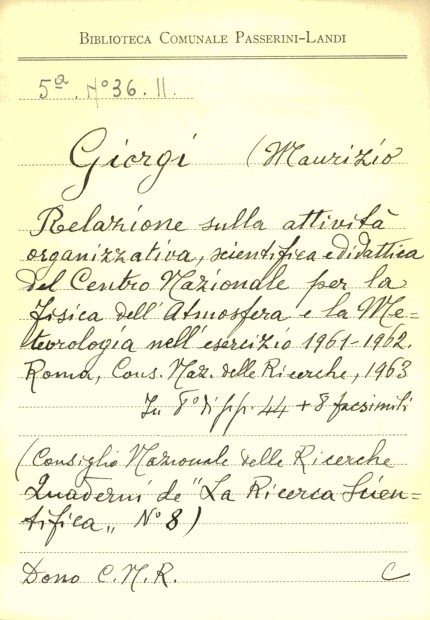 BIBLIOTECA COMUNALE PASSERINI-LANDI
5ª. Nº 36. 11.
Giorgi (Maurizio
Relazione sulla attività
organizzativa, scientifica e didattica
del Centro Nazionale per la
fisica dell'Atmosfera e la Me-
teorologia nell'esercizio 1961-1962.
Roma, Cons. Naz. delle Ricerche, 1963
In 8º di pp. 44 + 8 facsimili
(Consiglio Nazionale delle Ricerche
Quaderni de "La Ricerca Scien-
tifica„ Nº 8)
Dono C.N.R. C